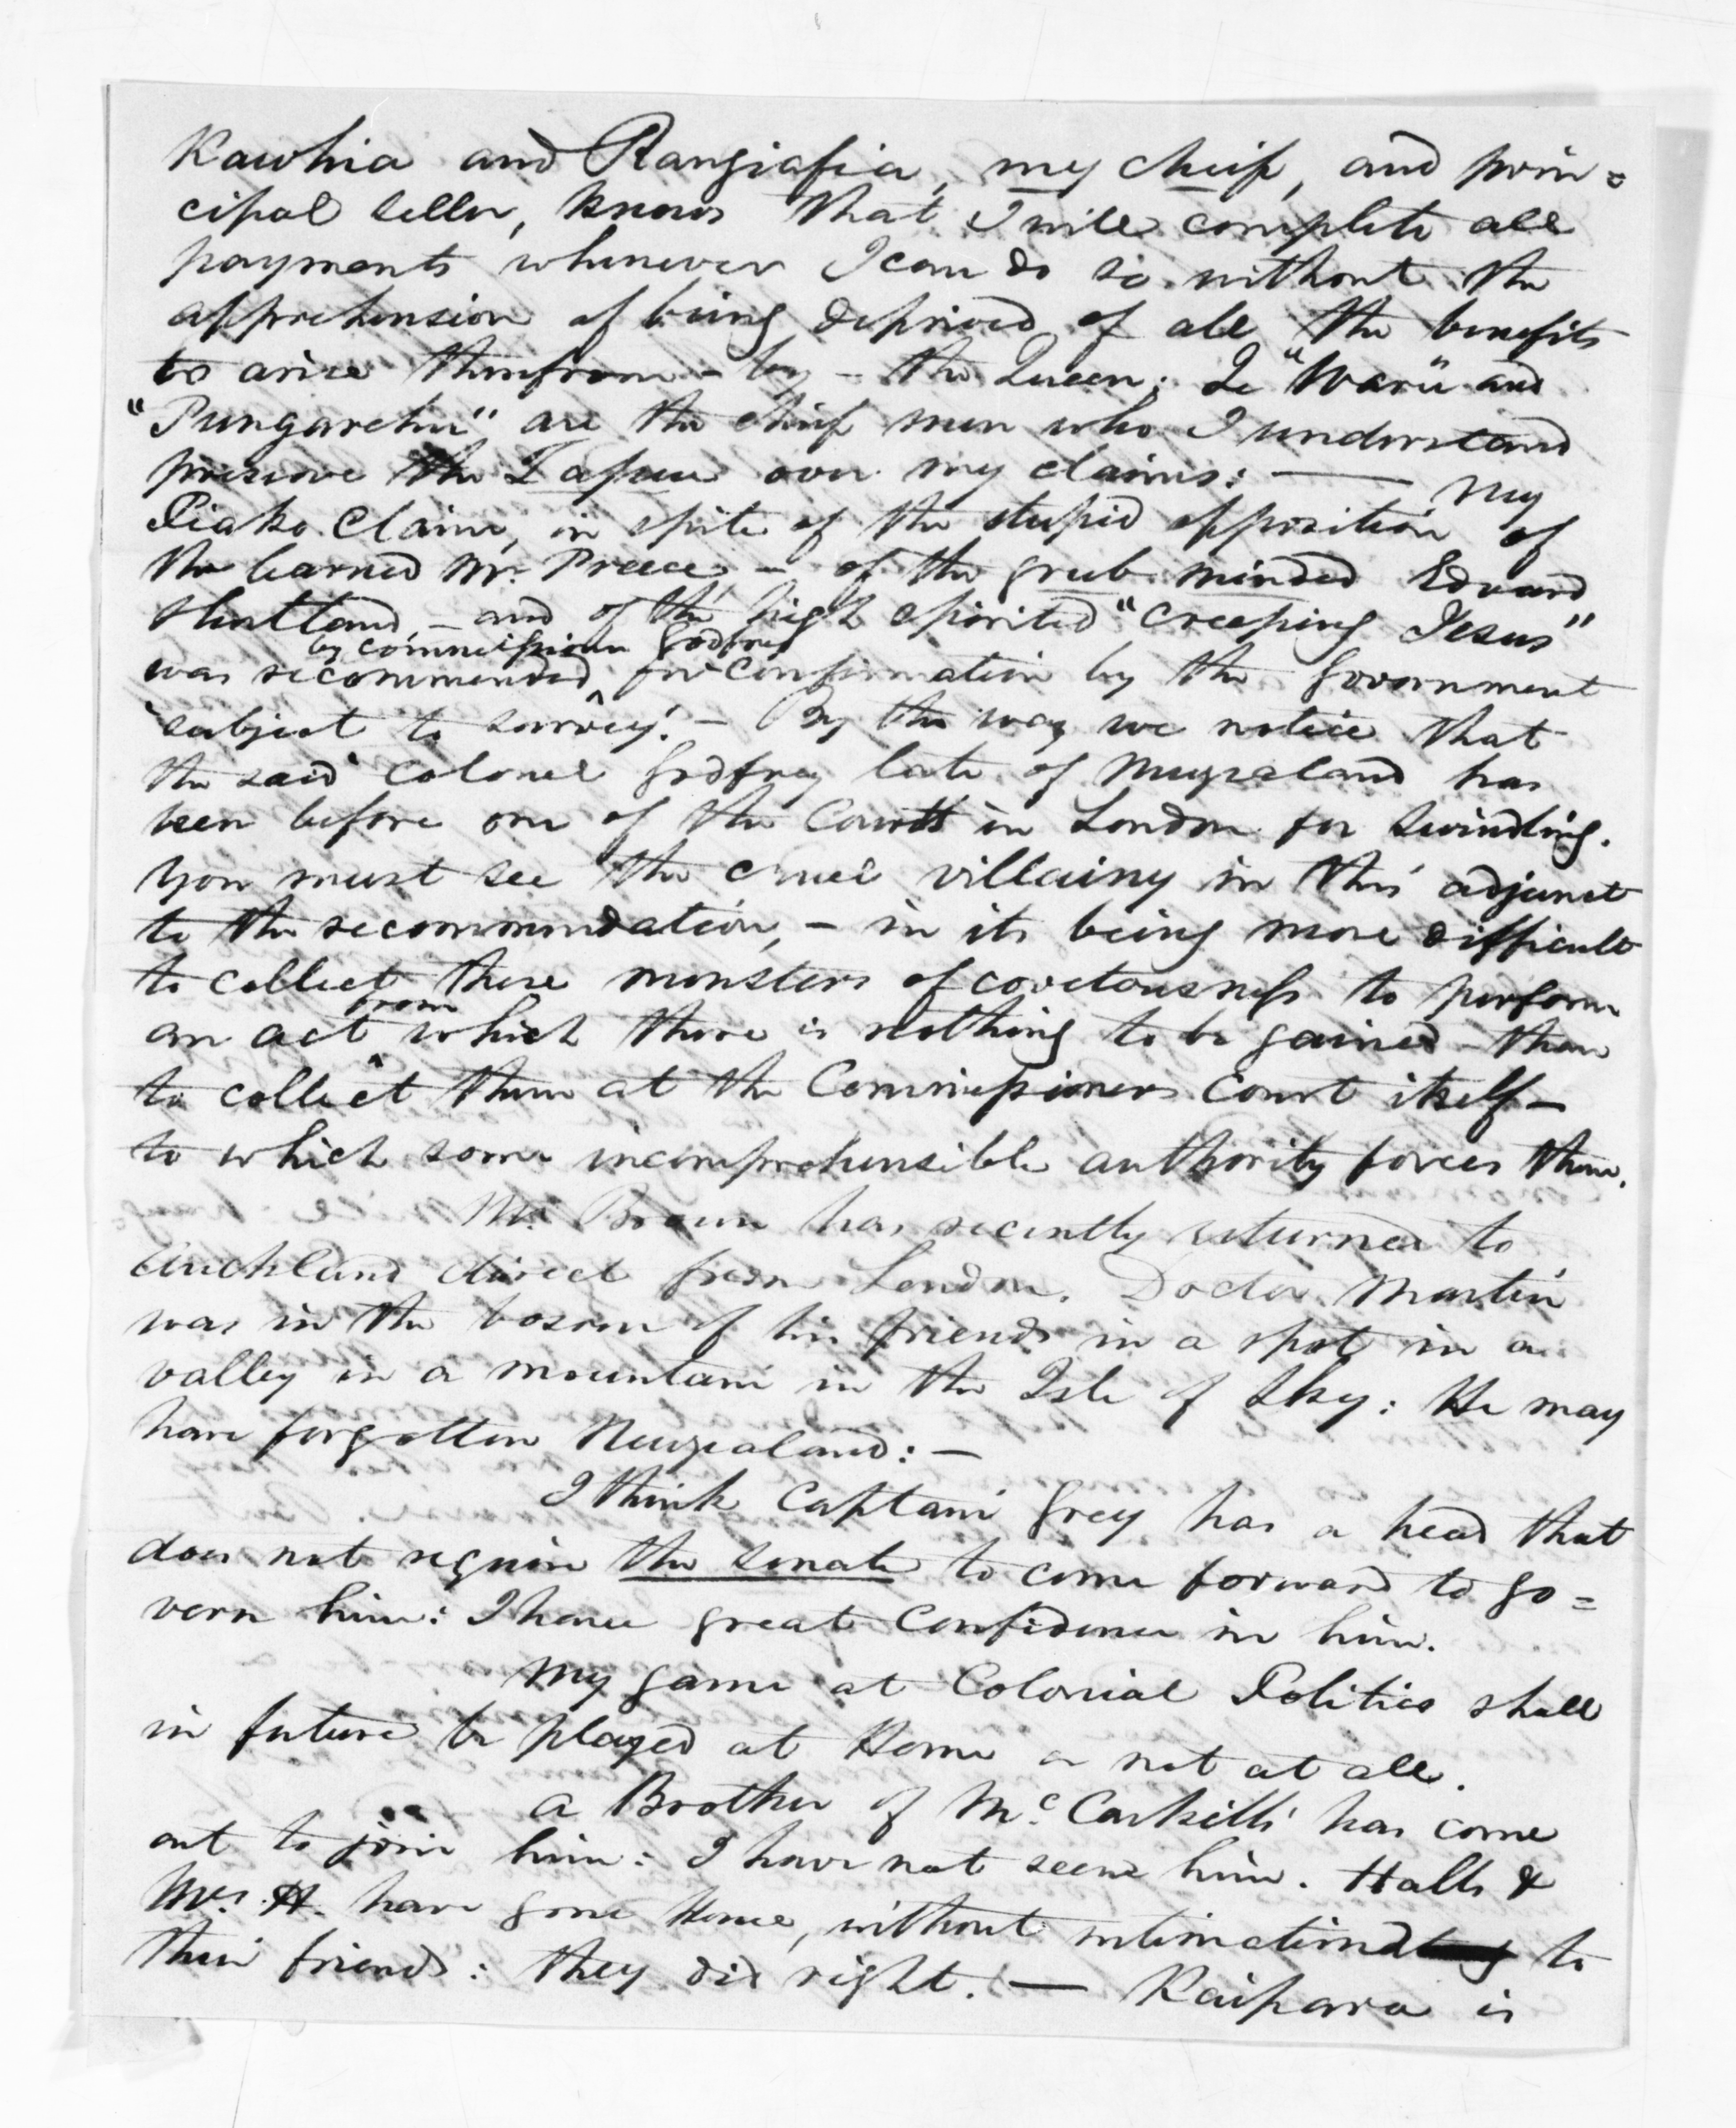 Kawhia and Rangiafia, my cheif, and prin=
cipal seller, knows that I will complete all
payments whenever I can do so without the
apprehension of being deprived of all the benefits
to arise therefrom - by - the Queen: Te "Waru" and
"Pungarehu" are the chief men who I understand
preserve the Tapue over my claims: — My
Piako Claim, in spite of the stupid opposition of
the learned Mr. Preece, - of the grub minded Edward
Shortland, - and of the high spirited "Creeping Jesus"
by Commissioner Godfrey
was recommended for confirmation by the Government
"subject to survey." - By the way we notice that
the said Colonel Godfrey late of Newzealand has
been before one of the Courts in London for swindling.
You must see the cruel villainy in this adjunct
to the recommendation, - in its being more difficult
to collect these monsters of covetousness to perform
from
an act which there is nothing to be gained - than
to collect them at the Commissioners Court itself -
to which some incomprehensible authority forces them.
Mr. Brown has recently returned to
Auckland direct from London. Doctor Martin
was in the bosom of his friends in a spot in a
valley in a mountain in the Isle of Sky: He may
have forgotten Newzealand: —
I think Captain Grey has a head that
does not require the senate to come forward to go=
vern him: I have great Confidence in him.
My game at Colonial Politics shall
in future be played at Home or not at all.
A Brother of Mc. Caskill's has come
out to join him: I have not seen him. Halls &
Mrs. H. have gone Home, without intimation to
their friends: they did right. — Kaipara is